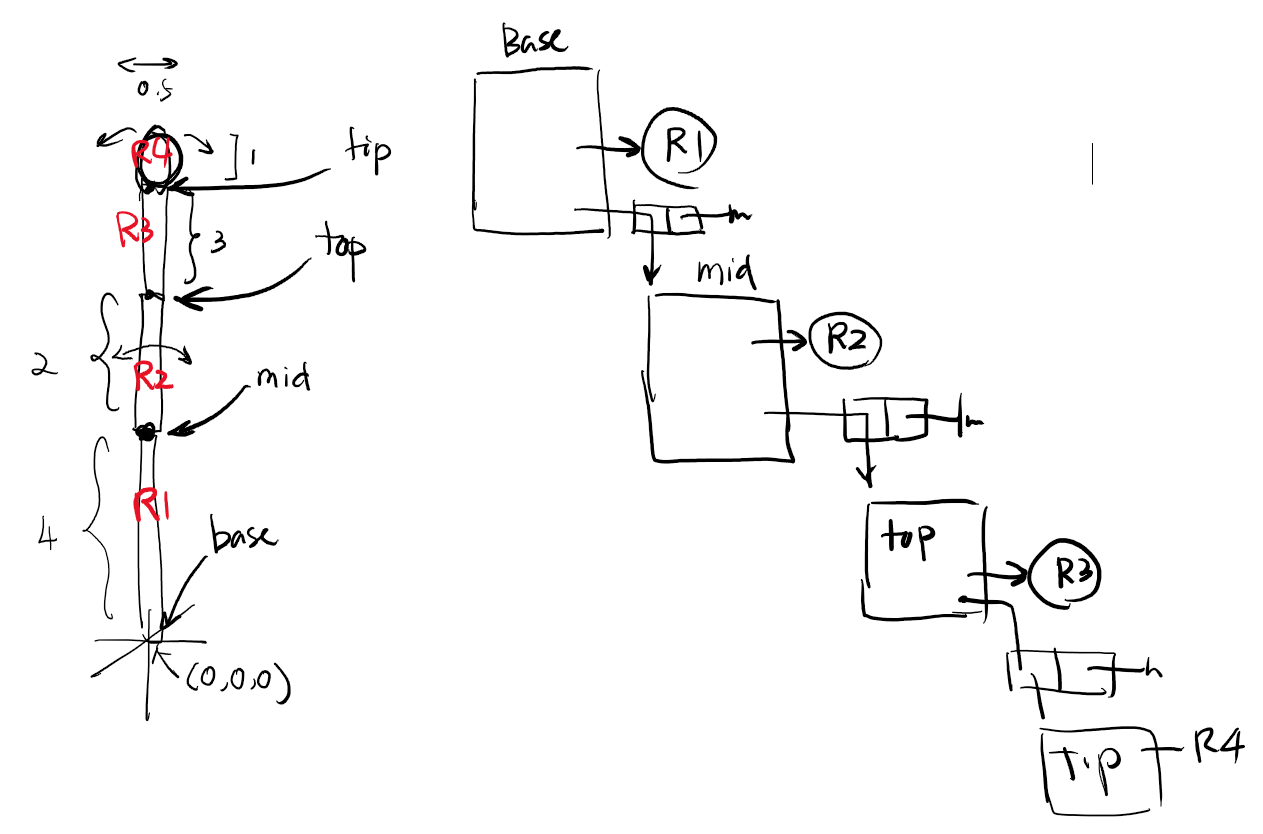 0.5
R4
1
tip
R3
3
top
2
R2
mid
4
R1
base
(0,0,0)
Base
R1
mid
R2
top
R3
tip
R4